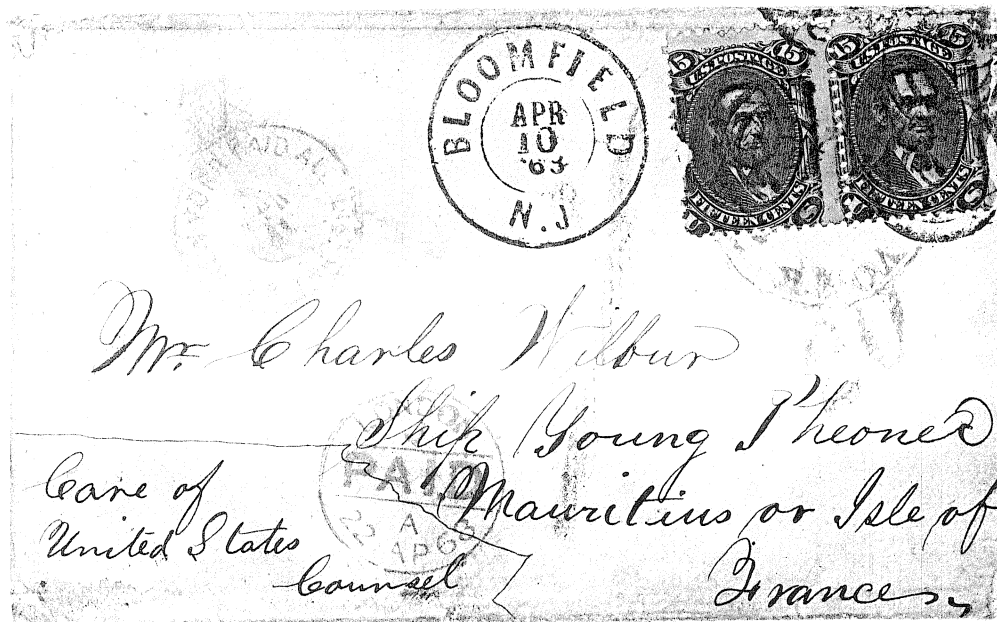 BLOOMFIELD
APR
10
'63
N.J
U.S. POSTAGE
15 15
FIFTEEN CENTS
U.S. POSTAGE
15 15
FIFTEEN CENTS
Mr. Charles Wilbur
Ship Young Pheonex
Mauritius or Isle of
France,
Care of
United States
Counsel
LONDON
PAID
A
22 AP 63
PAID